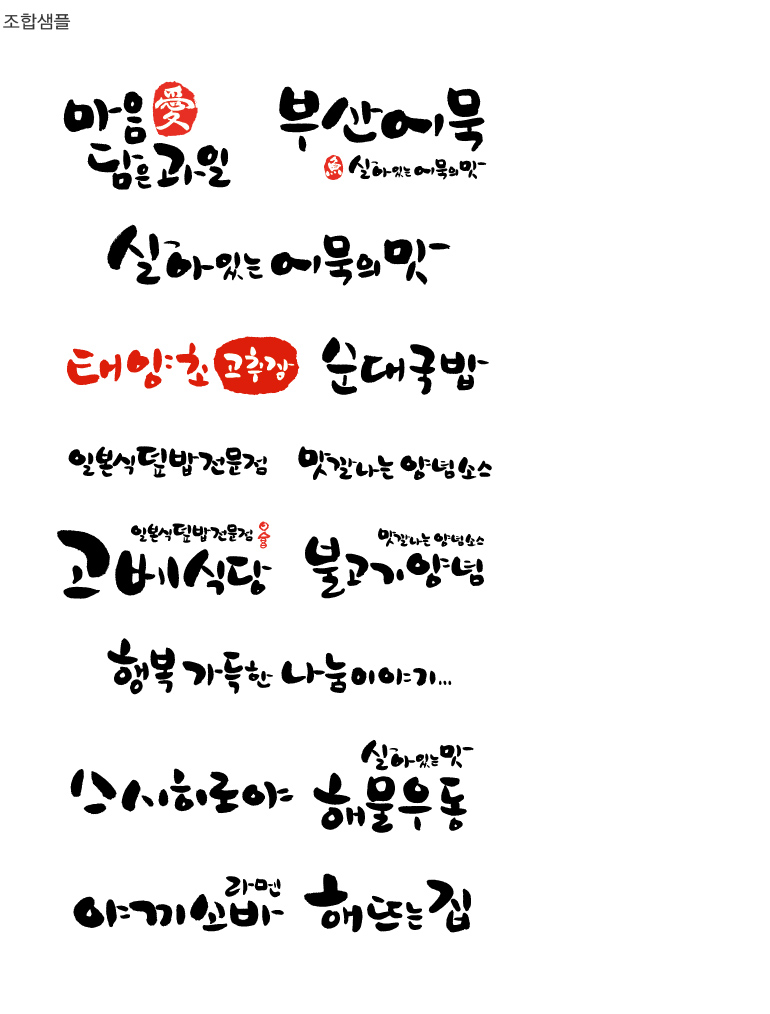 조합샘플
마음 愛
담은 과일
부산어묵
魚 살아있는 어묵의 맛
살아있는 어묵의 맛
태양초 고추장
순대국밥
일본식 덮밥 전문점
맛깔나는 양념소스
일본식 덮밥 전문점
고베식당
맛깔나는 양념소스
불고기양념
행복 가득한 나눔이야기...
스시히로야
살아있는 맛
해물우동
라멘
야끼소바
해뜨는집